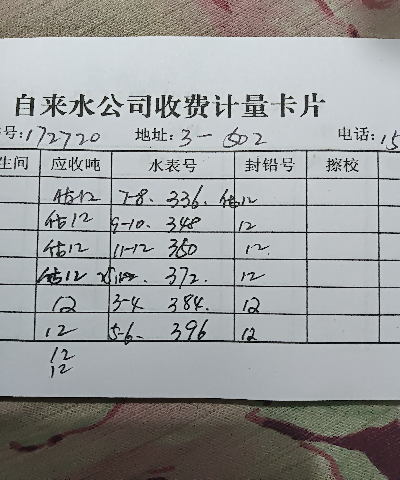 自来水公司收费计量卡片
号:172720 地址:3-602 电话:15
生间 应收吨 水表号 封铅号 擦校
估12 7-8. 336. 估12
估12 9-10. 348 12
估12 11-12 360 12.
估12 372. 12
12 3-4 384. 12
12 5-6. 396 12
12
12